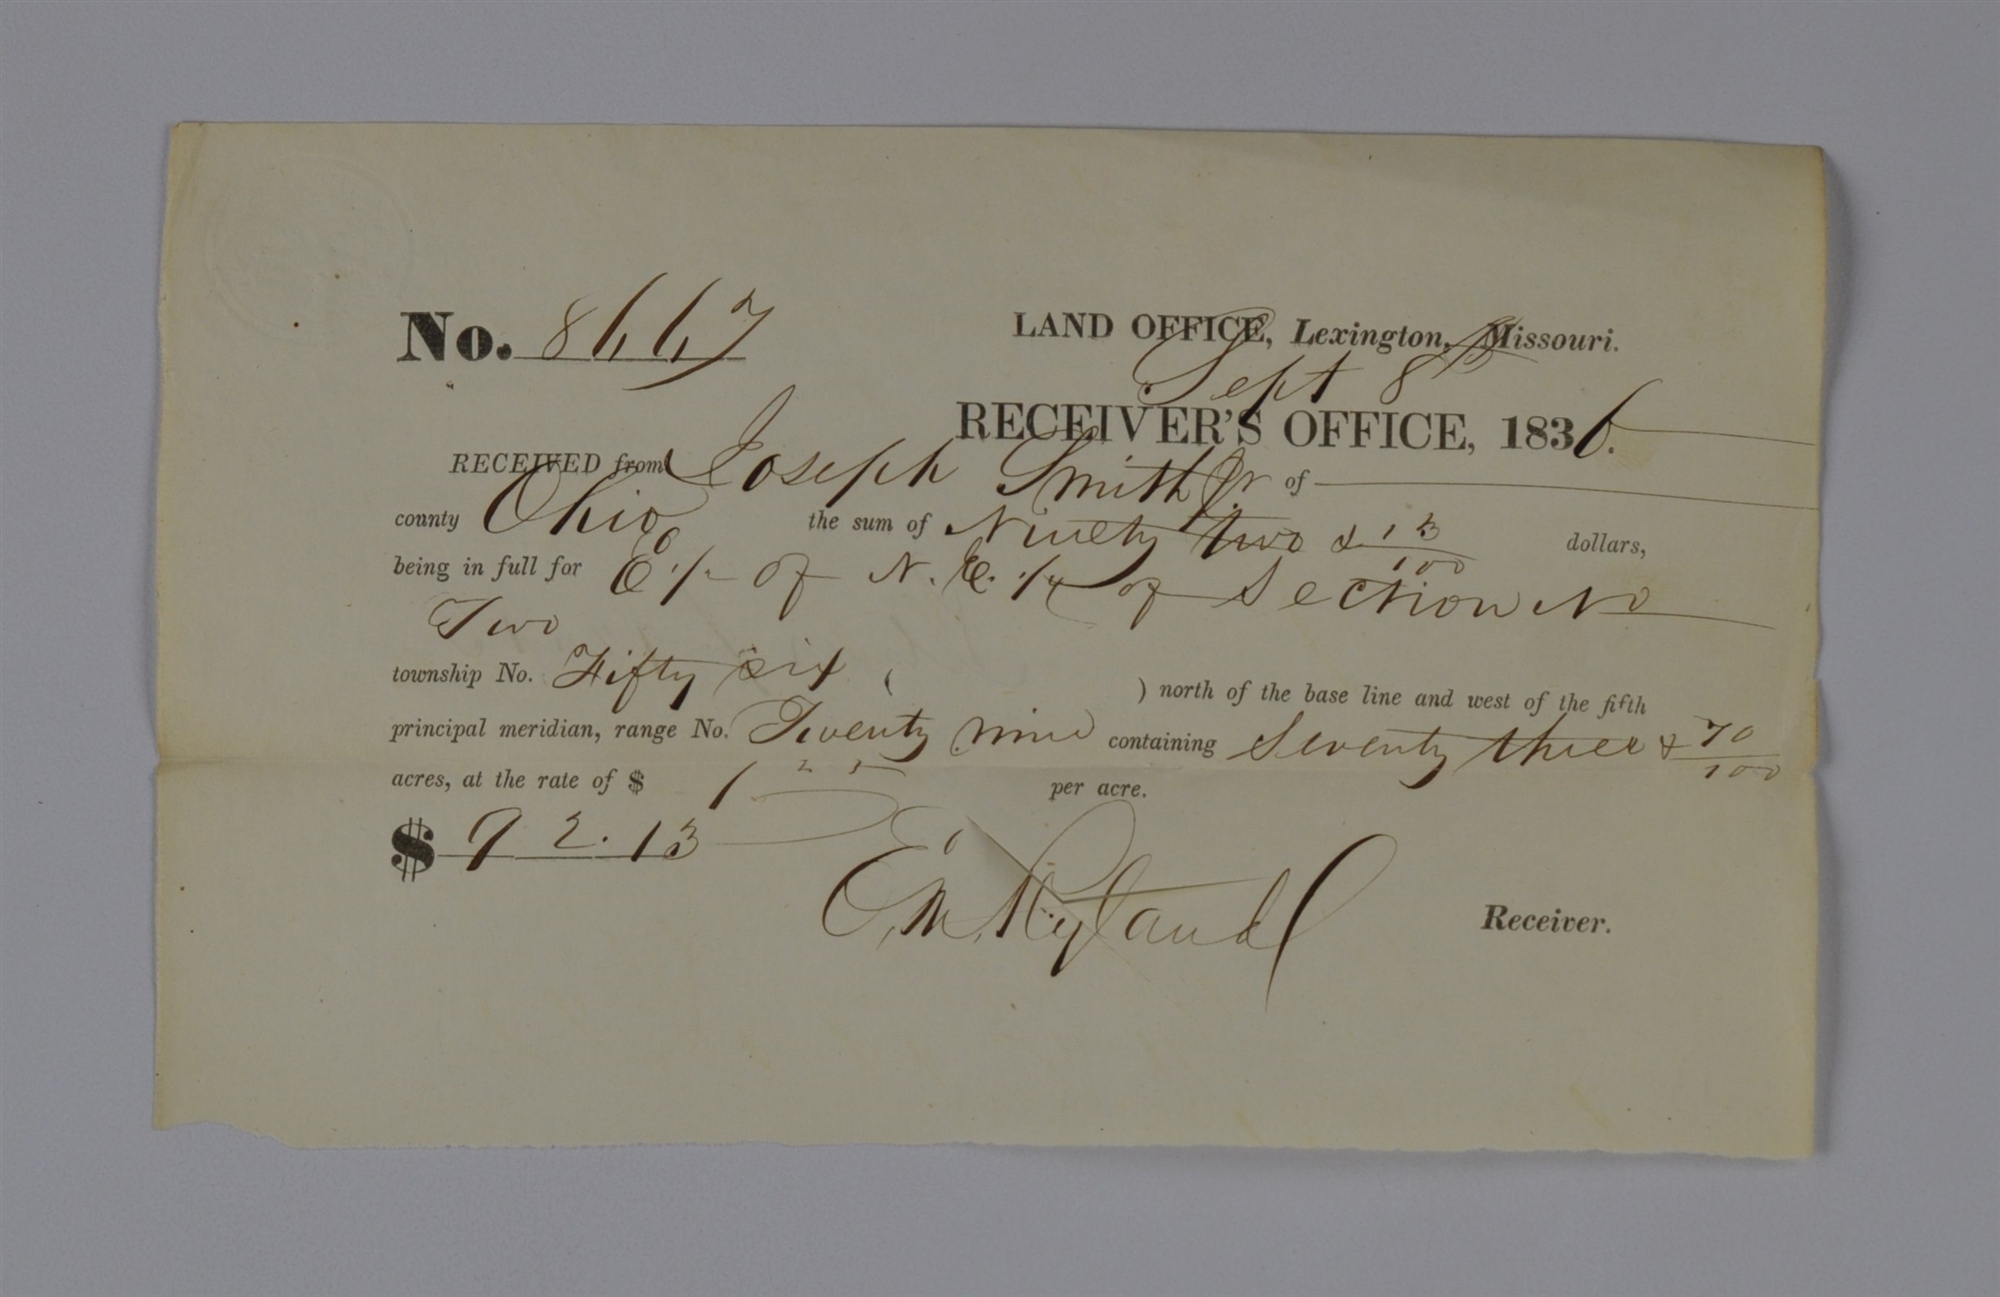 No. 8667
LAND OFFICE, Lexington, Missouri.
Sept 8th
RECEIVER'S OFFICE, 1836.
RECEIVED from Joseph Smith Jr of
county Ohio the sum of Ninety two & 13/100 dollars,
being in full for E. 1/2 of N. E. 1/4 of Section No
Two
township No. Fifty six ( ) north of the base line and west of the fifth
principal meridian, range No. Twenty nine containing Seventy three & 70/100
acres, at the rate of $ 1 25 per acre.
$ 92.13
E. M. Ryland Receiver.